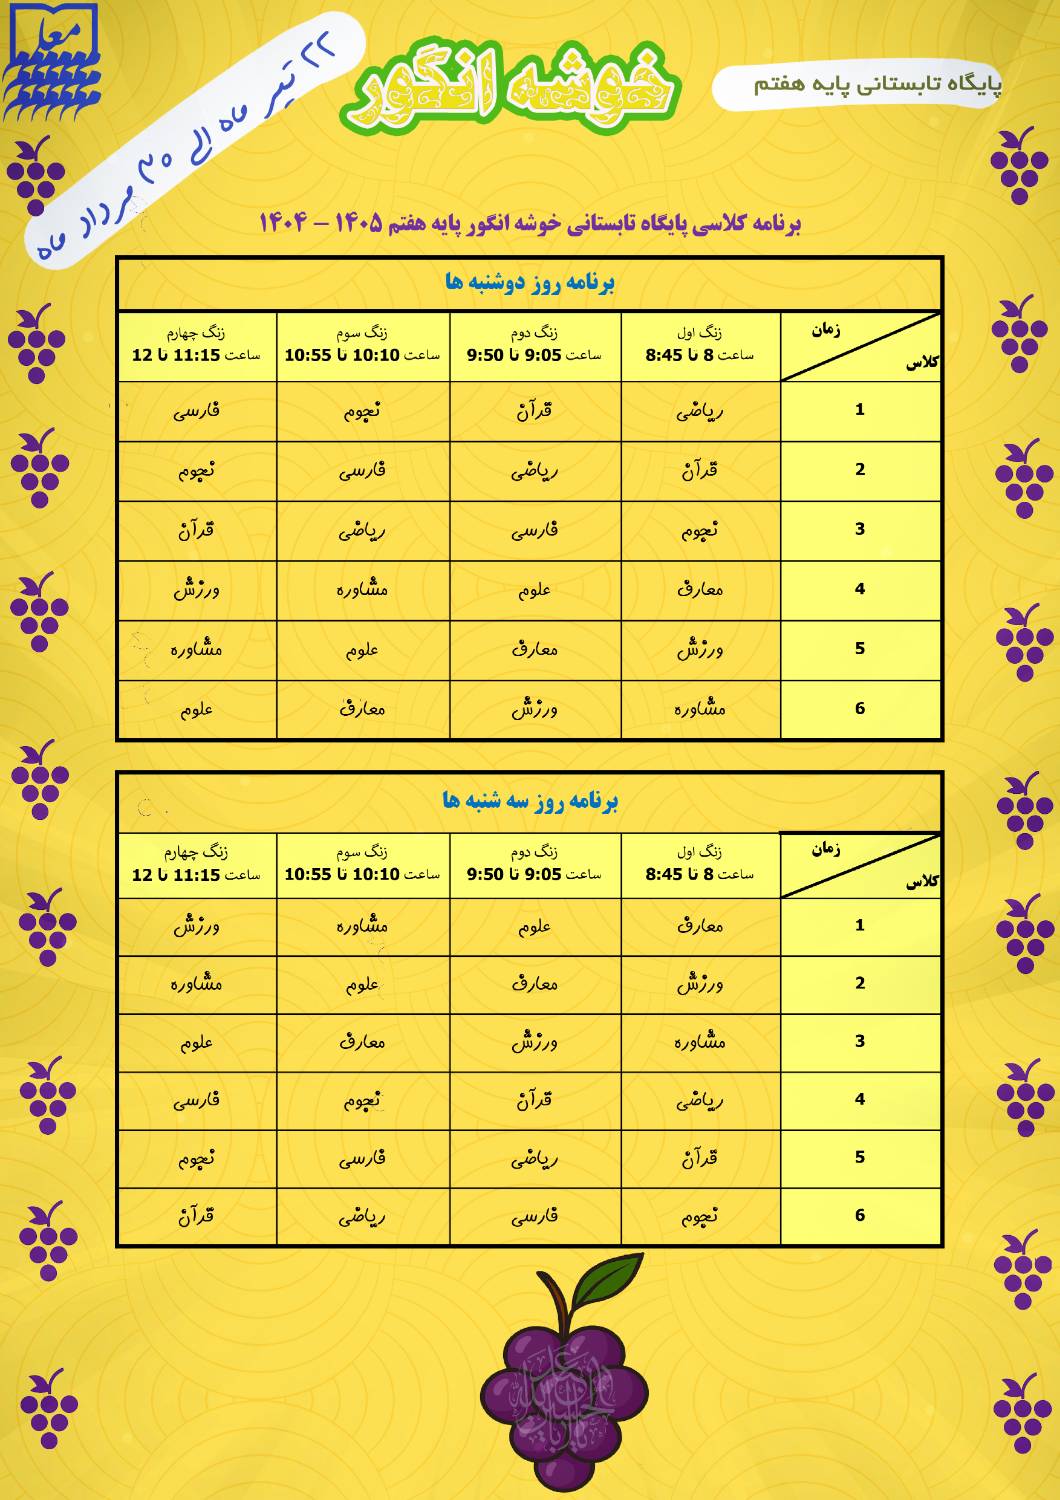 معلم
۲۲ تیر ماه الی ۳۰ مرداد ماه
خوشه انگور
پایگاه تابستانی پایه هفتم
برنامه کلاسی پایگاه تابستانی خوشه انگور پایه هفتم ۱۴۰۵ – ۱۴۰۴
برنامه روز دوشنبه ها
زمان کلاس زنگ اول ساعت 8 تا 8:45 زنگ دوم ساعت 9:05 تا 9:50 زنگ سوم ساعت 10:10 تا 10:55 زنگ چهارم ساعت 11:15 تا 12
1 ریاضی قرآن نجوم فارسی
2 قرآن ریاضی فارسی نجوم
3 نجوم فارسی ریاضی قرآن
4 معارف علوم مشاوره ورزش
5 ورزش معارف علوم مشاوره
6 مشاوره ورزش معارف علوم
برنامه روز سه شنبه ها
زمان کلاس زنگ اول ساعت 8 تا 8:45 زنگ دوم ساعت 9:05 تا 9:50 زنگ سوم ساعت 10:10 تا 10:55 زنگ چهارم ساعت 11:15 تا 12
1 معارف علوم مشاوره ورزش
2 ورزش معارف علوم مشاوره
3 مشاوره ورزش معارف علوم
4 ریاضی قرآن نجوم فارسی
5 قرآن ریاضی فارسی نجوم
6 نجوم فارسی ریاضی قرآن